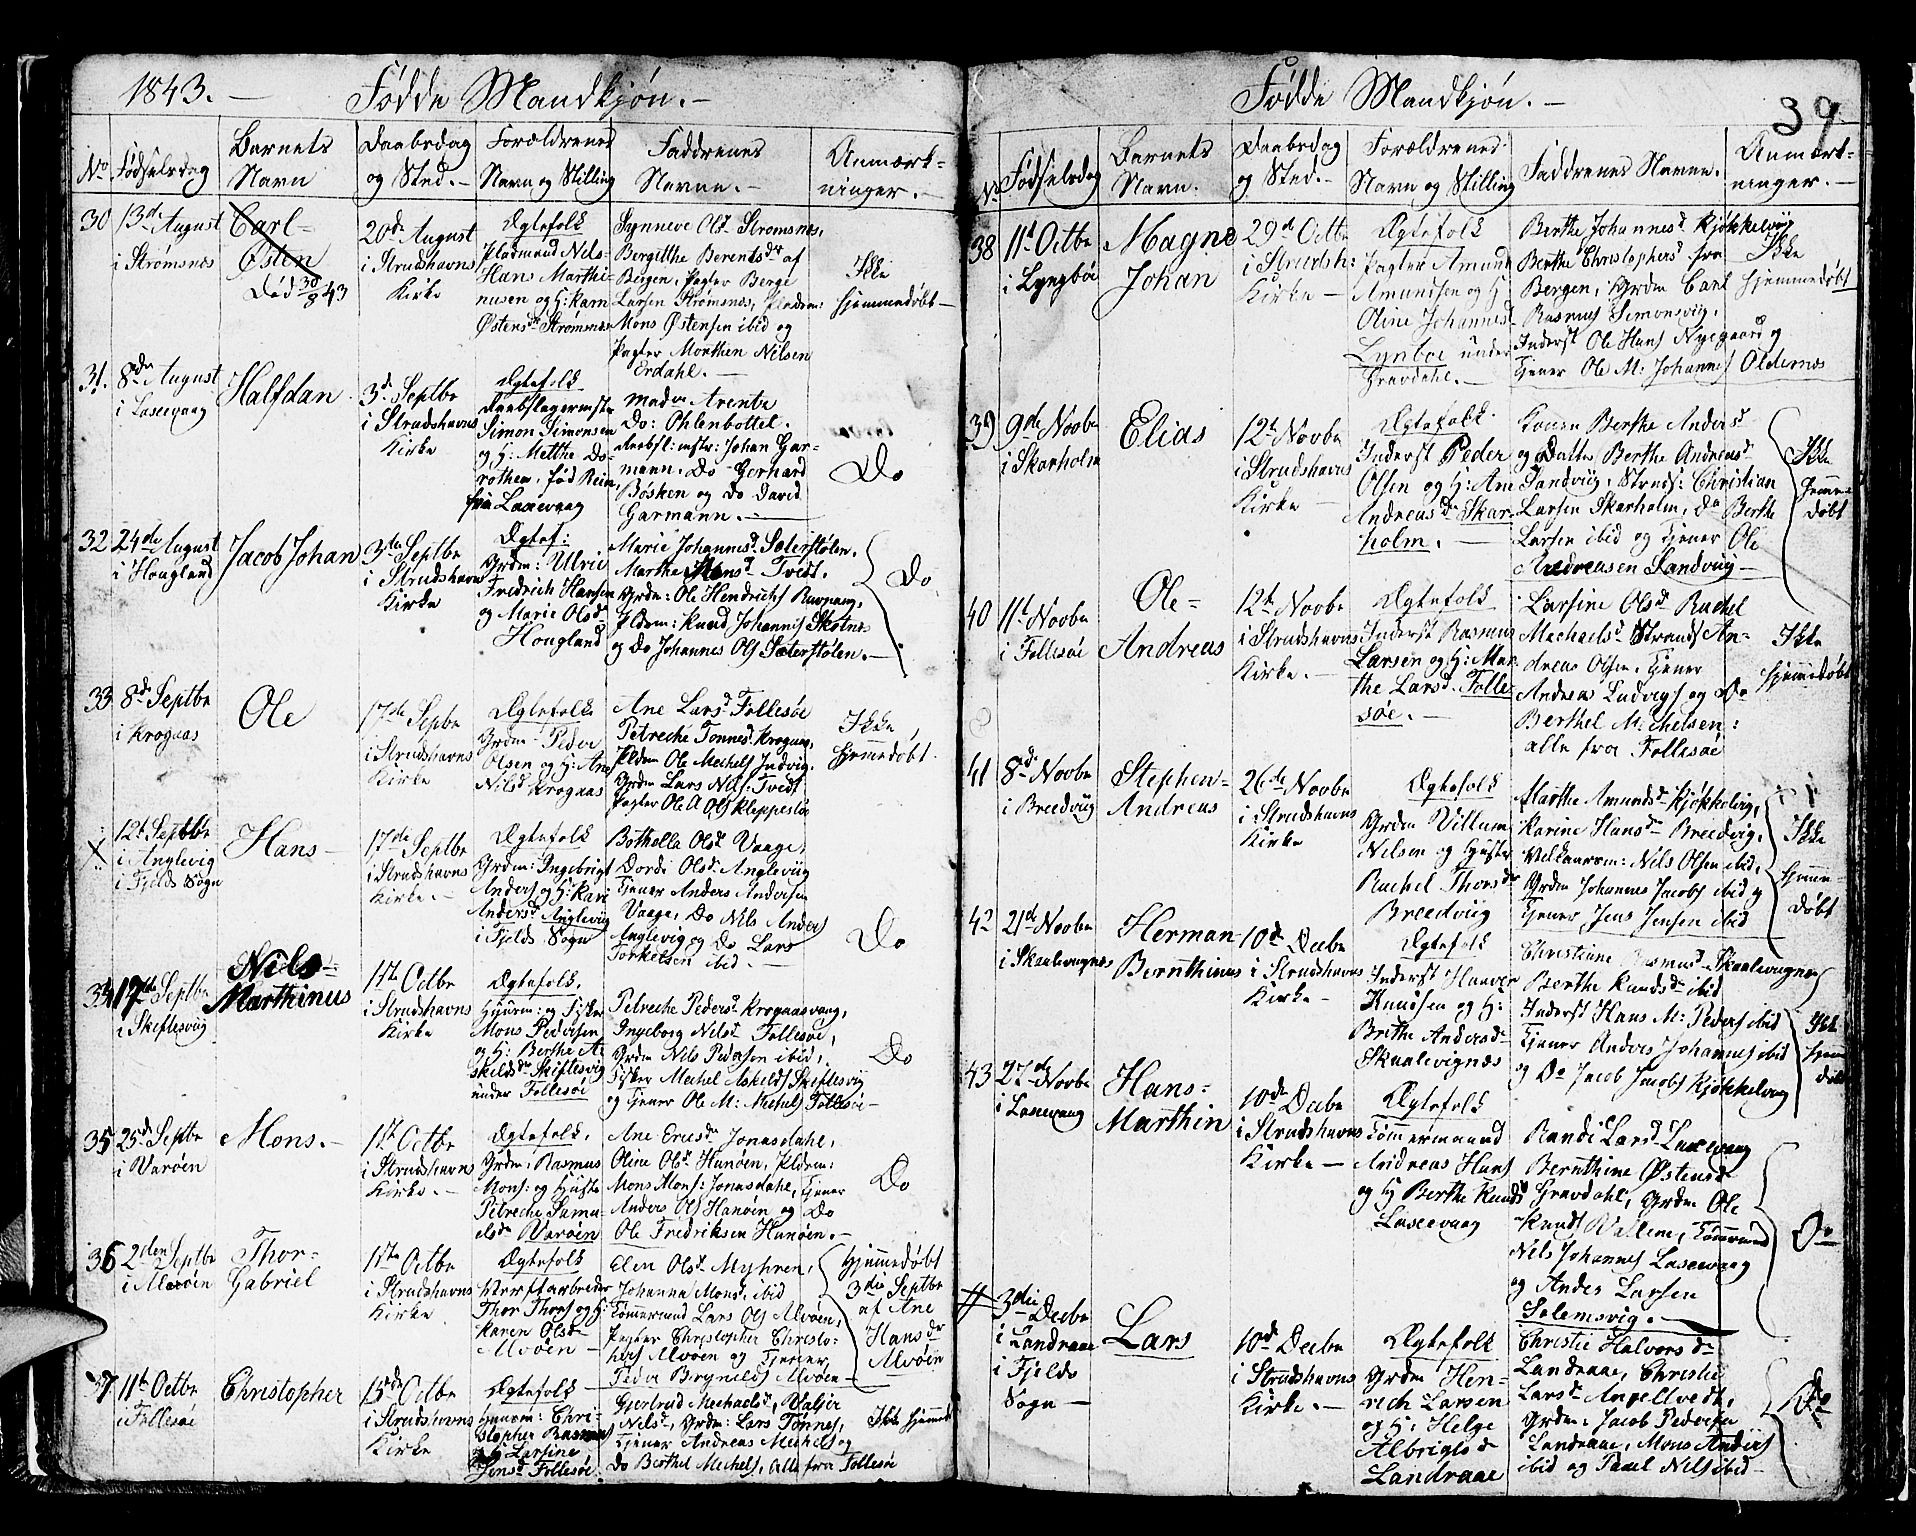 1843. — Fødde Mandkjøn. —
No Fødselsdag
Barnets Navn
Daabsdag og Sted. —
Forældrenes Navn og Stilling
Faddrenes Navne. —
Anmærk-
ninger. —
30
13de August
i Strømsnes
Carl-
Østen
Død 30/8 43
20de August
i Strudshavns
Kirke
Ægtefolk
Pladsmand Nels-
Hans Marthi-
nusen og H: Karn
Østensdr Strømsnes
Synneve Olsd. Strømsnes,
Bergitthe Berentsdr af
Bergen, Pagter Berge
Larsen Strømsnes,
Mons Østensen ibid og
Pagter Monthen Nilsen
Erdahl. —
Ikke
hjemmedøbt
31.
8de August
i Laxevaag
Halfdan
3d. Septbr
i Strudshavns
Kirke
Ægtefolk
Simon Simonsen
og H: Metthe Do-
rothea, fød Rein,
fra Laxevaag
Mad. Arentz
Do: Ohlenbottel.
Johan Gar-
mann. Do Gerhard
Bøsken og Do David
Garmann. —
Do
32
24de August
i Hougland
Jacob Johan
3de Septbr
i Strudshavns
Kirke
Ægtef:
Grdm: Ulric
Fredrich Hansen
og Marie Olsdr
Hougland
Marie Johannesd. Sæterstølen,
Marthe Monsd Tvedt.
Grdm: Ole Hendrichs
Pldm: Knud Johannes Skotnes
og Do Johannes Ols Sæterstølen. —
Do
33
8de Septbr
i Krogaas
Ole
17de Septbr
i Strudshavns
Kirke
Ægtefolk
Grdm: Peder
Olsen og H: Ane
Nilsd Krogaas
Ane Larsd. Follesøe
Petreche Tonnesd. Krogaas,
Pldm Ole Mechels Indvig.
Grdm Lars Nils: Tvedt
Pagter Ole A Ols Kleppestøe
Ikke
hjemmedøbt.
12t Septbr
i Anglevig
i Fjelds Sogn
Hans —
17de Septbr
i Strudshavns
Kirke. —
Ægtefolk
Grdm: Ingebrigt
Anders og H: Kari
Andersd. Anglevig
i Fjelds Sogn
Botholla Olsd. Vaage,
Dorde Olsd. Anglevig
Tjener Anders Andersen
Vaage, Do Nils Anders
Anglevig og Do Lars
Torkelsen ibid. —
Do
34
17de Septbr
i Skiftesviig
Nils-
Marthinus
1ste Octbr
i Strudshavns
Kirke
Ægtefolk.
Huusm: og Fisker
Mons Pedersen
og H: Berthe A-
skildsdr Skiftesvig
under Follesøe
Petreche Pedersd. Krogaasvaag,
Ingeborg Nilsd Follesøe,
Grdm Nils Pedersen ibid,
Fisker Mechel Askilds Skiftesvig
og Tjener Ole M: Mechels Follesøe —
Do
35
25de Septbr
i Varøen
Mons. —
1ste Octbr
i Strudshavns
Kirke. —
Ægtefolk.
Grdm: Rasmus
Mons: og Hustr
Petreche Samu-
elsdr Varøen
Ane Ericsdr Jonasdahl,
Oline Olsd. Hanøen, Pldm:
Mons Mons: Jonasdahl, Tjener
Anders Ols Hanøen og Do
Ole Fredriksen Hanøen. —
Do
36
2den Septbr
i Alvøen
Thor-
Gabriel
1ste Octbr
i Strudshavns
Kirke.
Ægtefolk
Værftarbeider
Thor Thors og H:
Karen Olsdr
Alvøen —
Elen Olsd. Myhren,
Johanna Monsd. ibid
Tømmermd Lars Ols Alvøen,
Pagter Christopher Christo-
phers Alvøen og Tjener
Peder Brynilds Alvøen —
hjemmedøbt
3die Septbr
af Ane
Hansdr
Alvøen
37
11te Octbr
i Follesøe
Christopher
15de Octbr
i Strudshavns
Kirke
Ægtefolk
Huusm: Chri-
stopher Rasmus
og H Larsine
Jensd. Follesøe
Gjertrud Mechaelsd, Valjer
Nilsd, Grdm: Lars Tønnes,
Tjener Andreas Mechels og
Do Berthel Mechels, alle fra Follesøe
Ikke hjemmed
Fødde Mandkjøn. —
39.
No Fødselsdag
Barnets Navn.
Daabsdag og Sted. —
Forældrenes Navn og Stilling
Faddrenes Navne.
Anmærk-
ninger. —
38
11te Octbr
i Lyngbøe
Magne
Johan
29de Octbr
i Strudsh:
Kirke —
Ægtefolk
Pagter Amund
Amundsen og H
Oline Johannesd
Lynboe under
Gravdahl. —
Berthe Johannesd Kjøkkelvig
Berthe Christophersd fra
Bergen, Grdm Carl
Rasmus Simonsviig,
Inderst Ole Hans Nyegaard og
Tjener Ole M: Johannes Oldernes
Ikke
hjemmedøbt
39
9de Novbr
i Skarholm
Elias
12t Novbr
i Strudshavns
Kirke —
Ægtefolk.
Inderst Peder
Olsen og H: Ane
Andreasdr Skar-
holm. —
Konen Berthe Andersd
og Datter Berthe Andreasd.
Sandviig, Strands: Christian
Larsen Skarholm, Do Berthe
Larsen ibid og Tjener Ole
Andreasen Sandviig —
Ikke
hjemme-
døbt
40
11t Novbr
i Follesøe
Ole-
Andreas
12t Novbr
i Strudshavns
Kirke. —
Ægtefolk
Inderst Rasmus
Larsen og H: Mar-
the Larsd. Folle-
søe. —
Larsine Olsd. Rachel
Mechaelsd. Strands An-
dreas Olsen, Tjener
Andreas Ludvigs og Do
Berthel Michelsen:
alle fra Follesøe
Ikke
hjemmedøbt
41
8de Novbr
i Breedviig
Stephen-
Andreas
26de Novbr
i Strudshavns
Kirke
Ægtefolk
Grdm Villum
Nilsen og Hustr
Rachel Thorsdr
Breedviig
Marthe Amundsdr Kjøkkelvig,
Karine Hansdr Breedvig,
Nils Olsen ibid,
Grdm Johannes Jacobs ibid og
Tjener Jens Jensen ibid
Ikke
hjemme-
døbt
42
21de Novbr
i Skaalevignes
Herman
Bernthinus
10de Decbr
i Strudshavns
Kirke —
Ægtefolk
Inderst Haaver
Knudsen og H:
Brithe Andersdr
Skaalevignæs
Christiane Rasmusd. Skaalevignes
Berthe Knudsdr ibid
Inderst Hans M: Peders ibid
Tjener Anders Johannes ibid
og Do Jacob Jacobs Kjøkkelvig
Ikke
hjem
døbt
43
27de Novbr
i Laxevaag
Hans-
Marthin
10de Decbr
i Strudshavns
Kirke —
Ægtefolk
Tømmermand
Andreas Hans
og H Berthe Knudsd
Laxevaag
Randi Larsd Laxevaag
Bernthine Østensdr
Gravdahl, Grdm Ole
Knuds Vallem, Tømmermd
Nils Johannes Laxevaag
og Anders Larsen
Solemsvig. —
Do
3die Decbr
i Landraae
i Fjelds
Sogn —
Lars
10de Decbr
i Strudshavns
Kirke. —
Ægtefolk
Grdm Hen-
rich Larsen
og H: Helge
Albrigtsdr
Landraae
Christie Halvorsdr
Landraae, Christie
Larsd. Angelltvedt,
Grdm: Jacob Pedersen
Landraae, Mons Anders
ibid og Paul Nils ibid —
Do